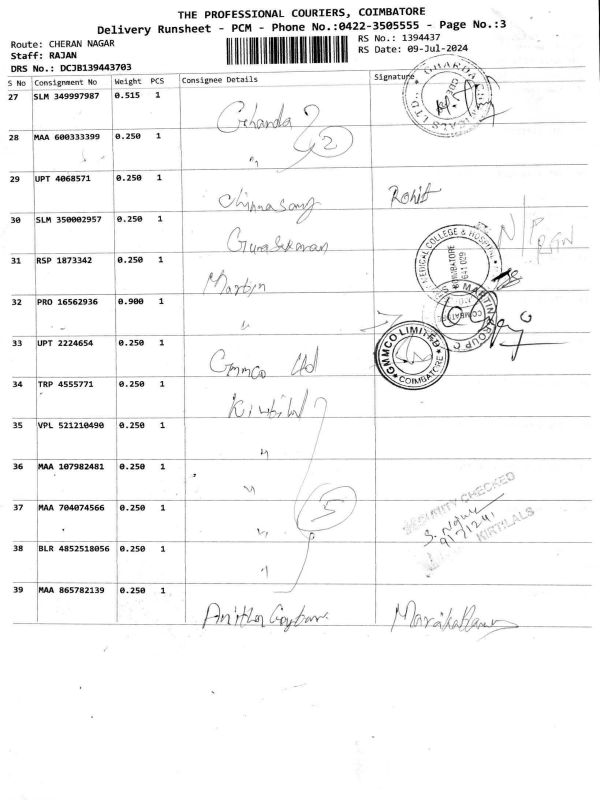 THE PROFESSIONAL COURIERS, COIMBATORE
Delivery Runsheet - PCM - Phone No.:0422-3505555 - Page No.:3
Route: CHERAN NAGAR
RS No.: 1394437
Staff: RAJAN
RS Date: 09-Jul-2024
DRS No.: DCJB139443703
S No Consignment No Weight PCS Consignee Details Signature
27 SLM 349997987 0.515 1
28 MAA 600333399 0.250 1 " 2
29 UPT 4068571 0.250 1 Chinnasamy Rohit
30 SLM 350002957 0.250 1 Gunasekaran
31 RSP 1873342 0.250 1 Martin
MEDICAL COLLEGE & HOSPITAL
COIMBATORE
641 029
32 PRO 16562936 0.900 1 "
MARTIN GROUP
33 UPT 2224654 0.250 1 Gmmco Ltd
GMMCO LIMITED
COIMBATORE
34 TRP 4555771 0.250 1
35 VPL 521210490 0.250 1 "
36 MAA 107982481 0.250 1 "
37 MAA 704074566 0.250 1 " 5
SECURITY CHECKED
KIRTILALS
38 BLR 4852518056 0.250 1 "
39 MAA 865782139 0.250 1 Anitha